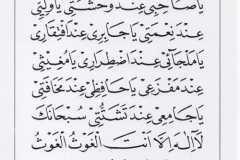 يَا صَاحِبِي عِنْدَ وَحْشَتِي يَا وَلِيِّي
عِنْدَ نِعْمَتِي يَا جَابِرِي عِنْدَ افْتِقَارِي
يَا مَلْجَائِي عِنْدَ اضْطِرَارِي يَا مُغِيثِي
عِنْدَ مَفْزَعِي يَا حَافِظِي عِنْدَ مَخَافَتِي
يَا جَامِعِي عِنْدَ تَشَتُّتِي سُبْحَانَكَ
لَا اِلٰهَ اِلَّا اَنْتَ الْغَوْثُ الْغَوْثُ